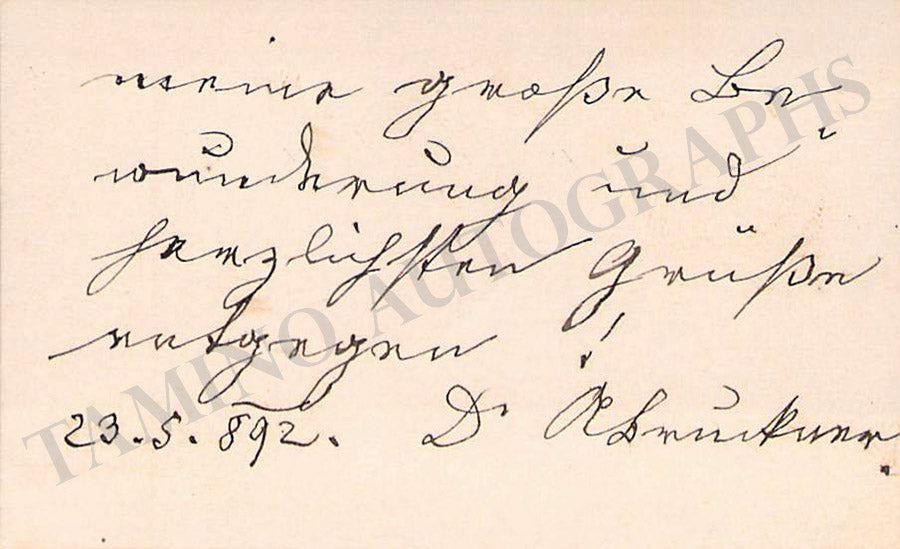 meine große Be-
wunderung und
herzlichsten Grüße
entgegen!
23.5.892. Dr ABruckner.
TAMINO AUTOGRAPHS